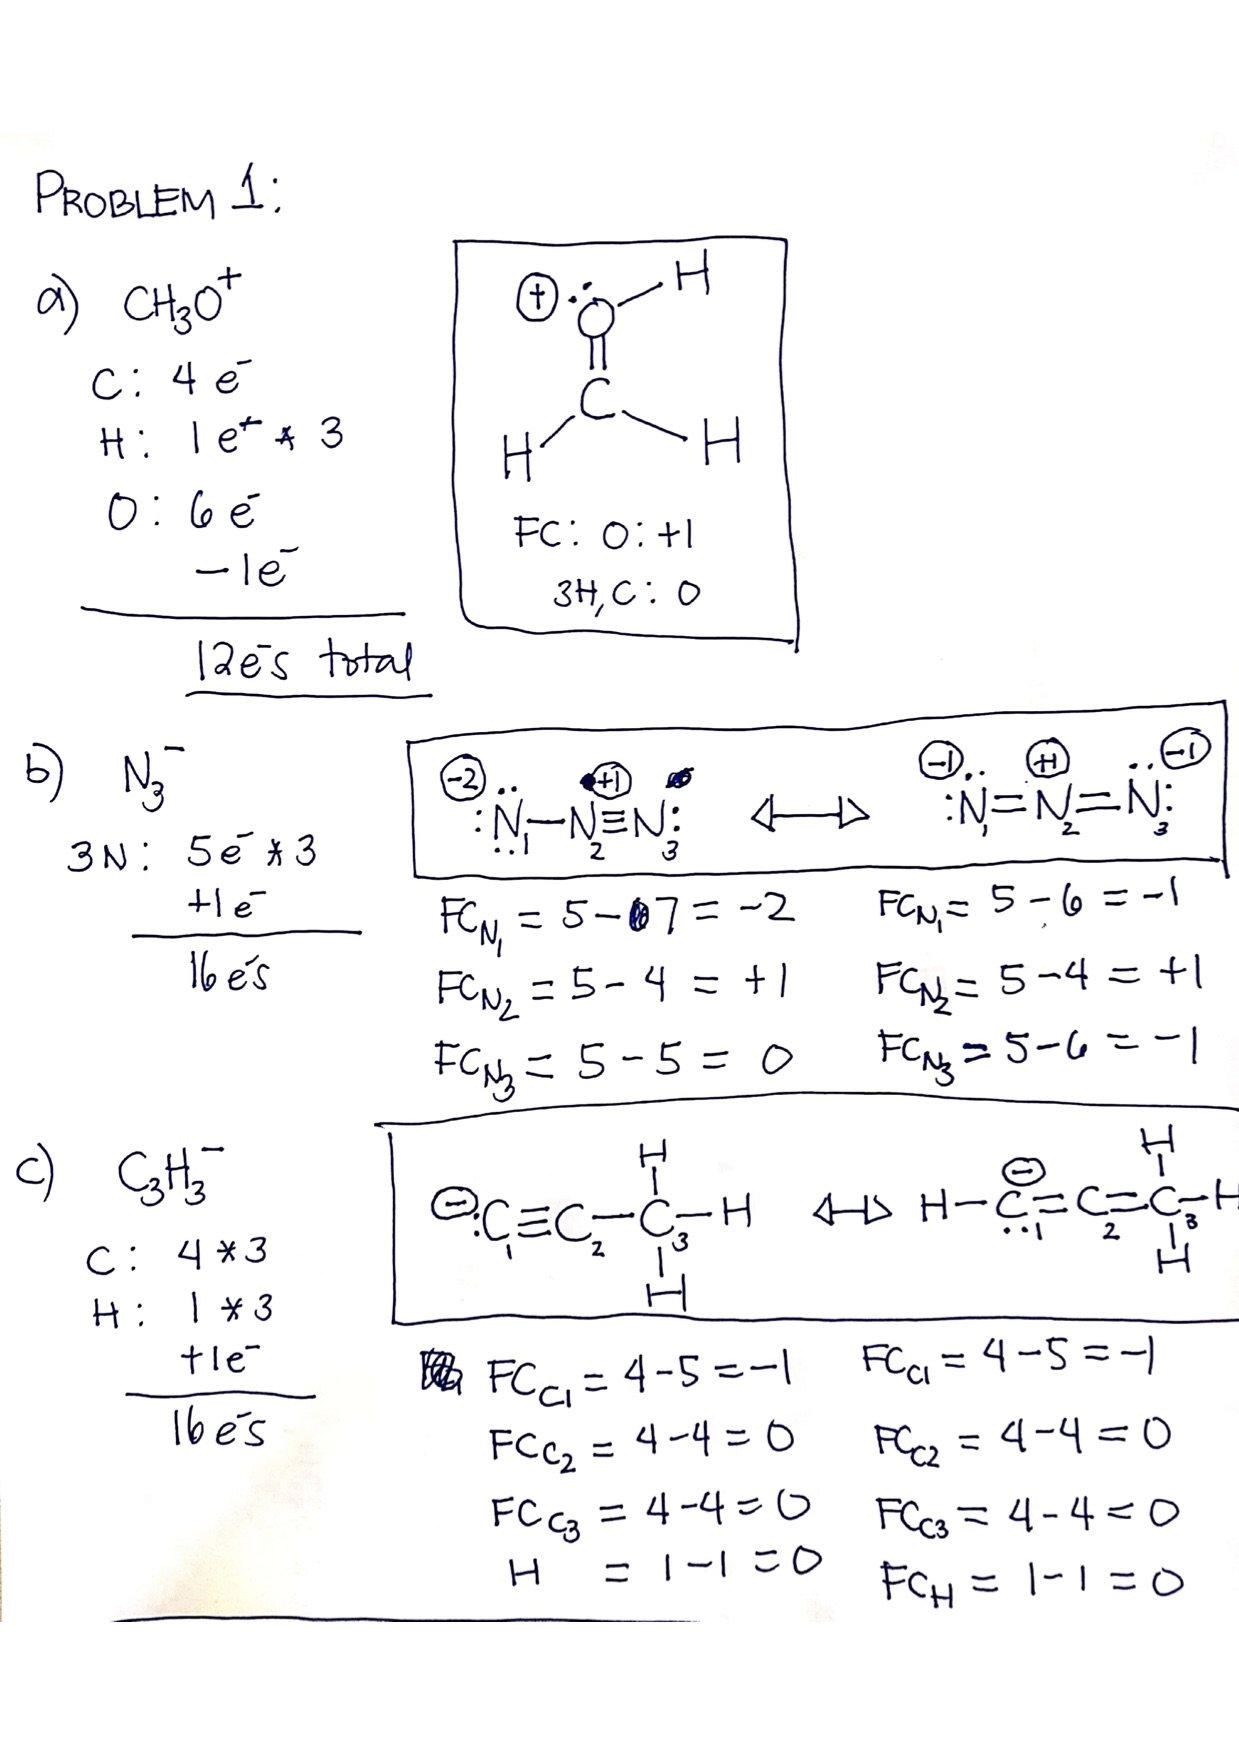 PROBLEM 1:
a) CH₃O⁺
C: 4 e⁻
H: 1 e⁺ * 3
O: 6 e⁻
−1e⁻
12e⁻s total
⊕ :O−H
||
C
H H
FC: O: +1
3H, C: 0
b) N₃⁻
3N: 5e⁻ * 3
+1e⁻
16 e⁻s
-2 +1 -1 +1 -1
:N̈₁−N₂≡N₃: ↔ :N̈₁=N₂=N̈₃:
FC_N₁ = 5−7 = −2 FC_N₁ = 5−6 = −1
FC_N₂ = 5−4 = +1 FC_N₂ = 5−4 = +1
FC_N₃ = 5−5 = 0 FC_N₃ = 5−6 = −1
c) C₃H₃⁻
C: 4 * 3
H: 1 * 3
+1e⁻
16 e⁻s
H ⊖ H
⊖:C₁≡C₂−C₃−H ↔ H−C̤₁=C₂=C₃−H
H H
FC_C1 = 4−5 = −1 FC_C1 = 4−5 = −1
FC_C2 = 4−4 = 0 FC_C2 = 4−4 = 0
FC_C3 = 4−4 = 0 FC_C3 = 4−4 = 0
H = 1−1 = 0 FC_H = 1−1 = 0